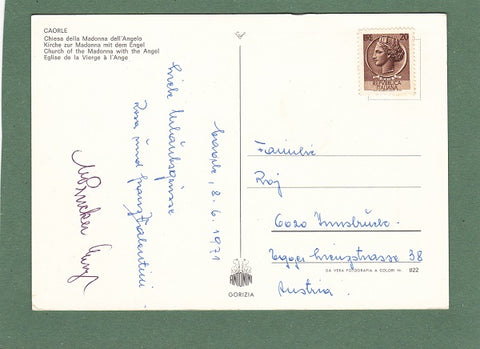 CAORLE
Chiesa della Madonna dell'Angelo
Kirche zur Madonna mit dem Engel
Church of the Madonna with the Angel
Eglise de la Vierge à l'Ange
20
REPUBBLICA
ITALIANA
Caorle, 8.6.1971
Liebe Urlaubsgrüsse
und Franz
Familie
6020 Innsbruck.
38
Austria.
ANTONINI
GORIZIA
DA VERA FOTOGRAFIA A COLORI Nr.
822